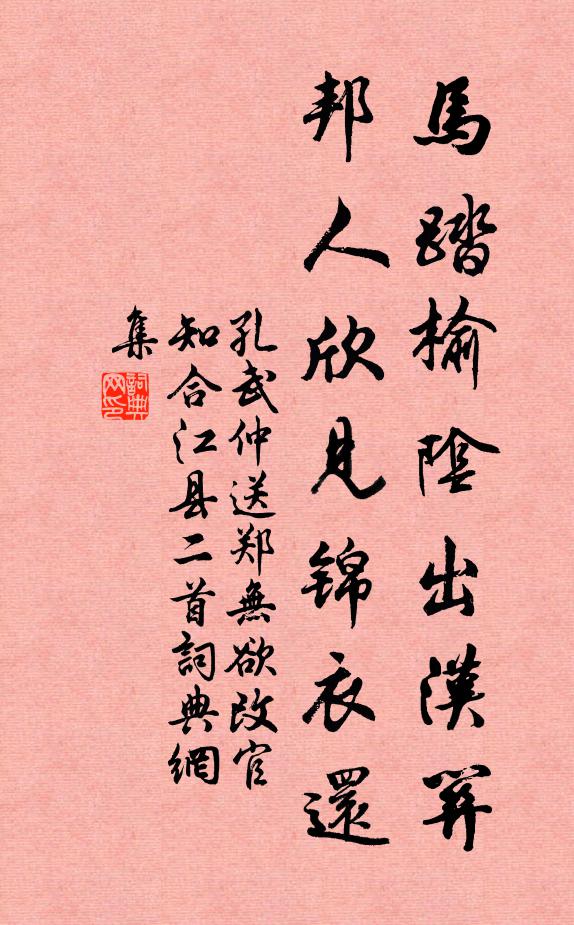 馬踏榆陰出漢關
邦人欣見錦衣還
孔武仲送郑無欲改官
知合江县二首詞典網
集
詞典网印